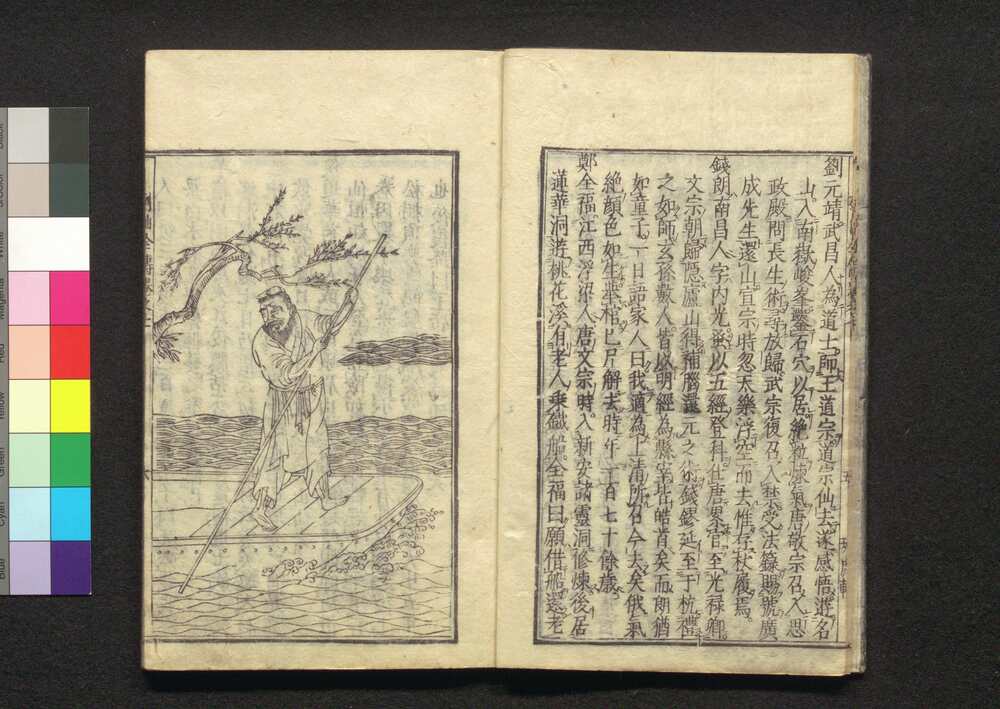 劉元靖武昌人為道士師王道宗道宗仙去遂感悟遊名
山入南嶽峻峯鑿石穴以居絶粒煉氣唐敬宗召入思
政殿問長生術放歸武宗復召入禁受法籙賜號廣
成先生還山宣宗時忽天樂浮空而去惟存杖履焉
錢朗南昌人字内光以五經登科仕唐累官至光禄卿
文宗朝歸隱廬山得補腦還元之術錢鏐延至于杭禮
之如師玄孫數人皆以明經為縣宰皓首矣而朗猶
如童子一日語家人曰我適為上清所召今去矣俄氣
絶顔色如生舉棺已尸解去時年一百七十餘歳
鄭全福江西浮梁人唐文宗時入新安諸靈洞修煉後居
蓮華洞遊桃花溪有老人乗鐵船全福曰願借船還老
Black
White
Magenta
Red
Yellow
Green
Cyan
Blue